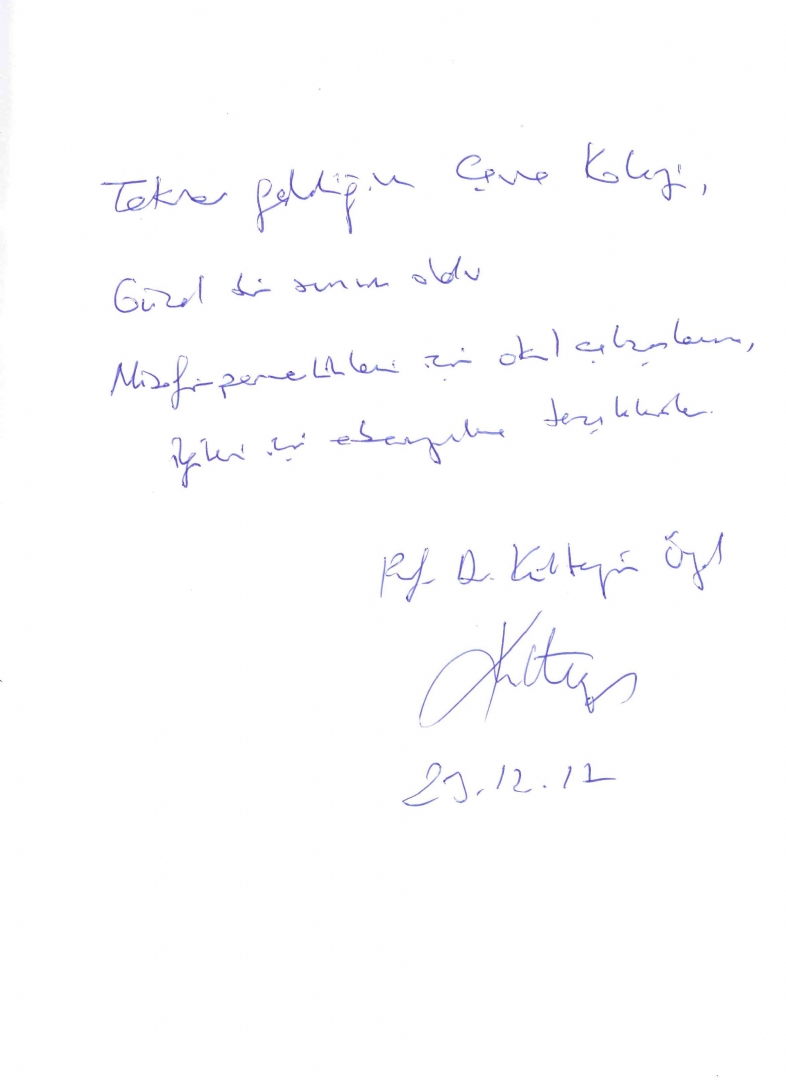 Tekrar geldiğim Çevre Koleji,
Güzel bir sunum oldu
Misafirperverlikleri için okul çalışanlarına,
ilgileri için ebeveynlere teşekkürler.
Prof. Dr. Kültegin Ögel
29.12.12